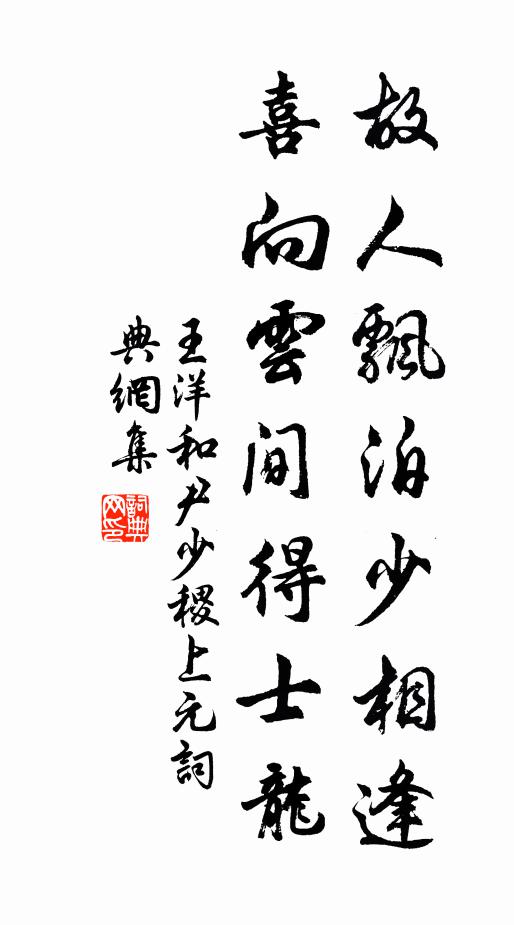 故人飄泊少相逢
喜向雲間得士龍
王洋和尹少稷上元詞
典網集
詞典网印